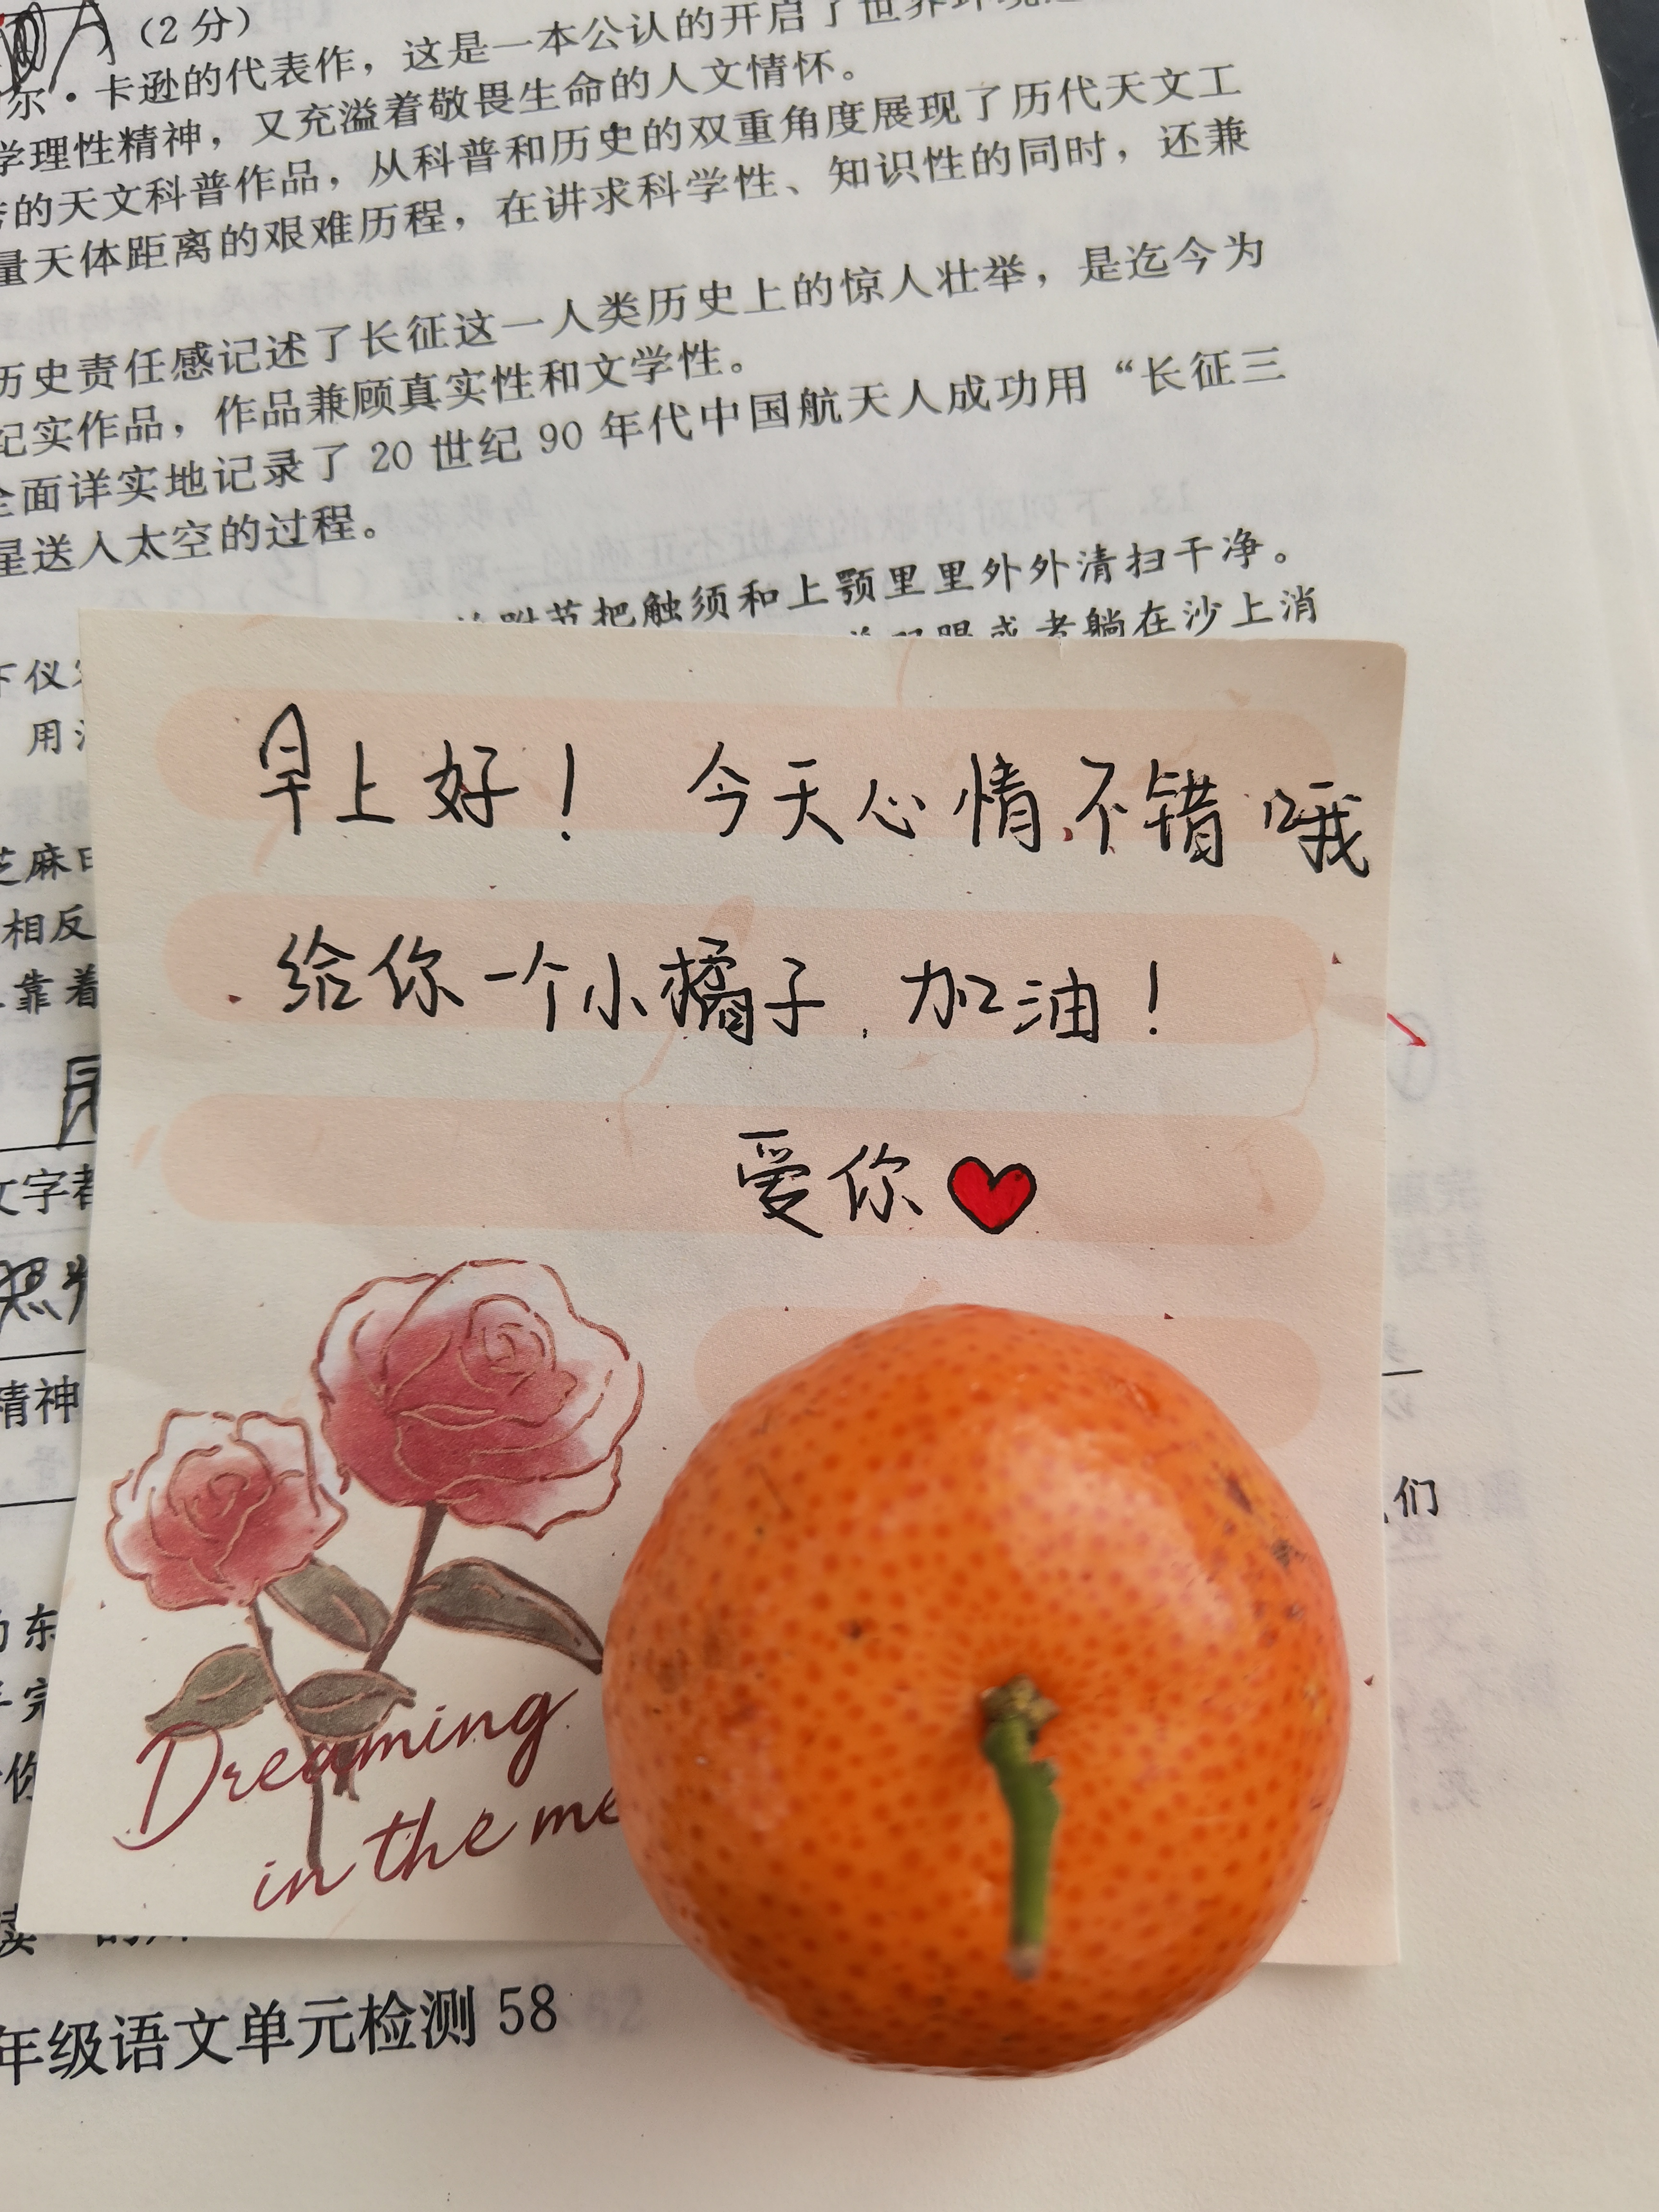 (2分)
尔·卡逊的代表作，这是一本公认的开启了世界环境
学理性精神，又充溢着敬畏生命的人文情怀。
的天文科普作品，从科普和历史的双重角度展现了历代天文工
量天体距离的艰难历程，在讲求科学性、知识性的同时，还兼
历史责任感记述了长征这一人类历史上的惊人壮举，是迄今为
纪实作品，作品兼顾真实性和文学性。
全面详实地记录了20世纪90年代中国航天人成功用“长征三
星送入太空的过程。
跗节把触须和上颚里里外外清扫干净。
双眼或者躺在沙上消
下仪
用
早上好！ 今天心情不错哦
芝麻
相反
给你一个小橘子，加油！
靠着
爱你
文字者
精神
们
东
Dreaming
in the me
年级语文单元检测 58